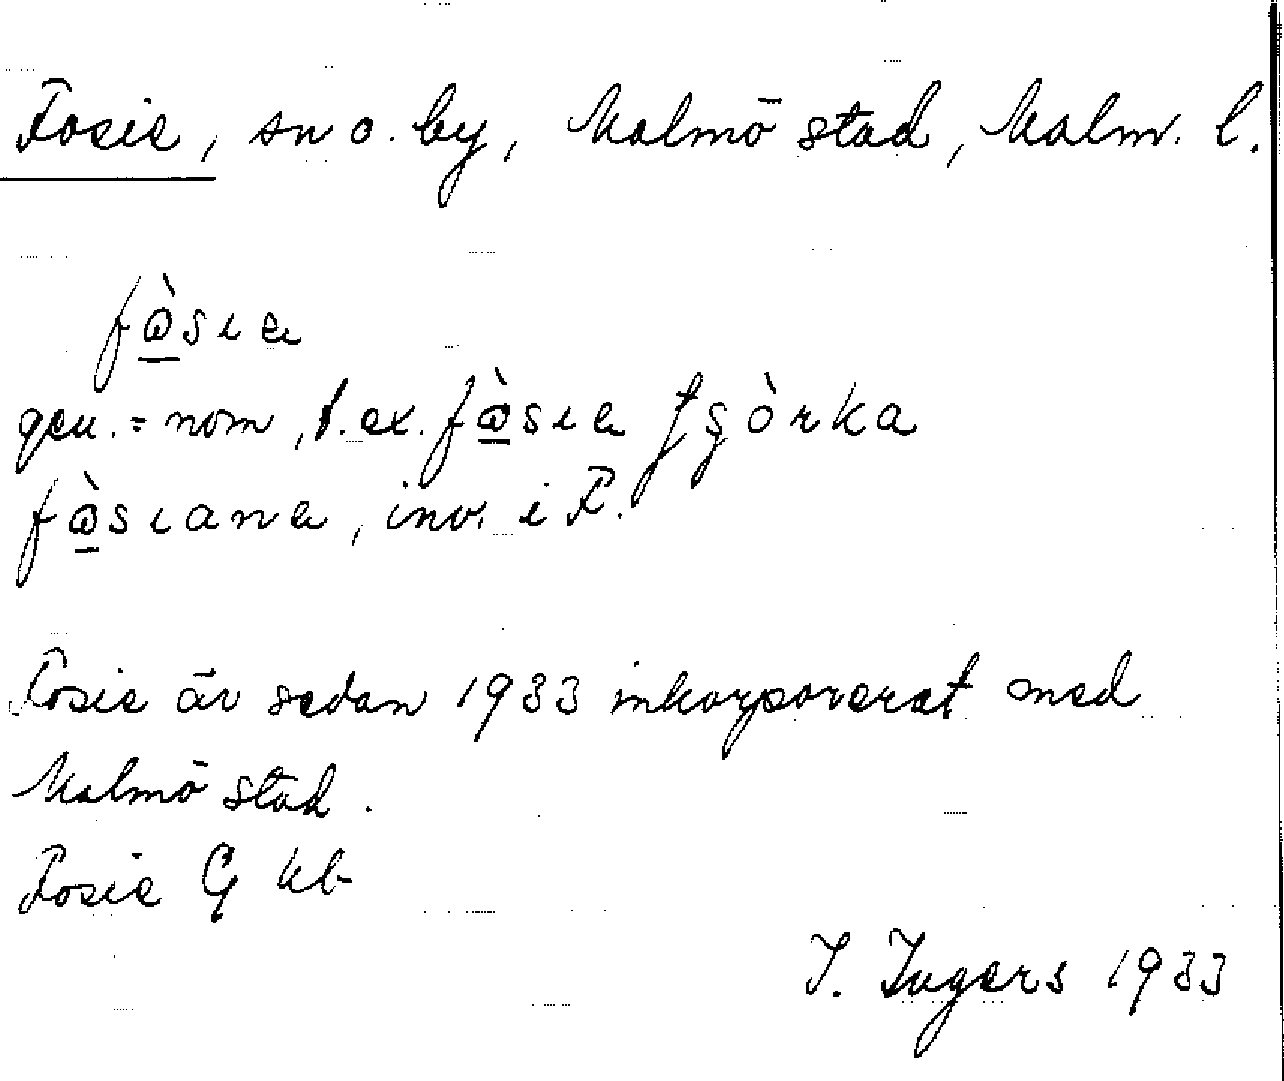 Fosie, sn o. by, Malmö stad, Malm. l.
fàsıa
gen. = nom, t.ex. fàsıa
fàsıana, inv. i F.
Fosie är sedan 1933 inkorporerat med
Malmö stad.
Fosie G kb
I. Ingers 1933